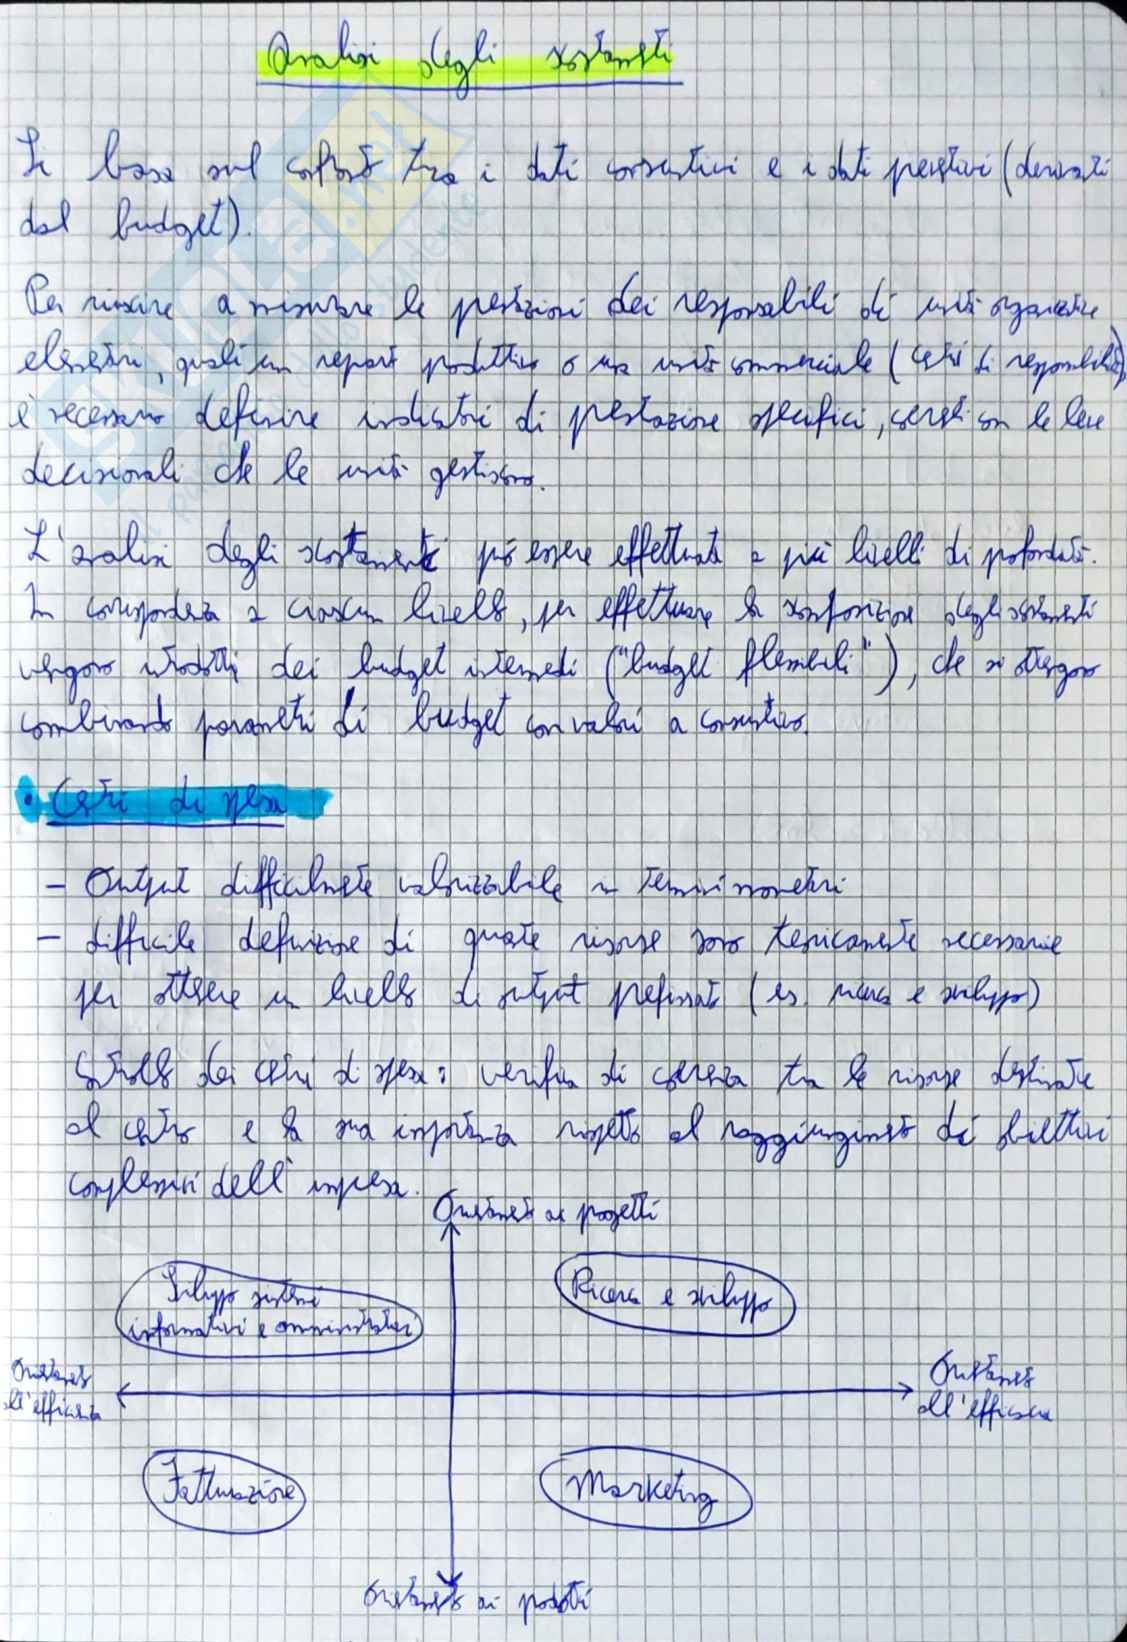 Analisi degli scostamenti
Si basa sul confronto tra i dati consuntivi e i dati preventivi (derivati
dal budget).
Per riuscire a misurare le prestazioni dei responsabili di unità organizzative
elementari, quali un reparto produttivo o una unità commerciale (centri di responsabilità),
è necessario definire indicatori di prestazione specifici, coerenti con le leve
decisionali che le unità gestiscono.
L'analisi degli scostamenti può essere effettuata a più livelli di profondità.
In corrispondenza a ciascun livello, per effettuare la scomposizione degli scostamenti
vengono introdotti dei budget intermedi ("budget flessibili"), che si ottengono
combinando parametri di budget con valori a consuntivo.
• Centri di spesa
- Output difficilmente valorizzabile in termini monetari
- difficile definizione di quante risorse sono tecnicamente necessarie
per ottenere un livello di output prefissato (es. ricerca e sviluppo)
Controllo dei centri di spesa: verifica di coerenza tra le risorse destinate
al centro e la sua importanza rispetto al raggiungimento di obiettivi
complessivi dell'impresa.
Orientamento ai progetti
Sviluppo sistemi
informativi e amministrativi
Ricerca e sviluppo
Orientamento
all'efficienza
Orientamento
all'efficacia
Fatturazione
Marketing
Orientamento ai prodotti
SKUOLA.net